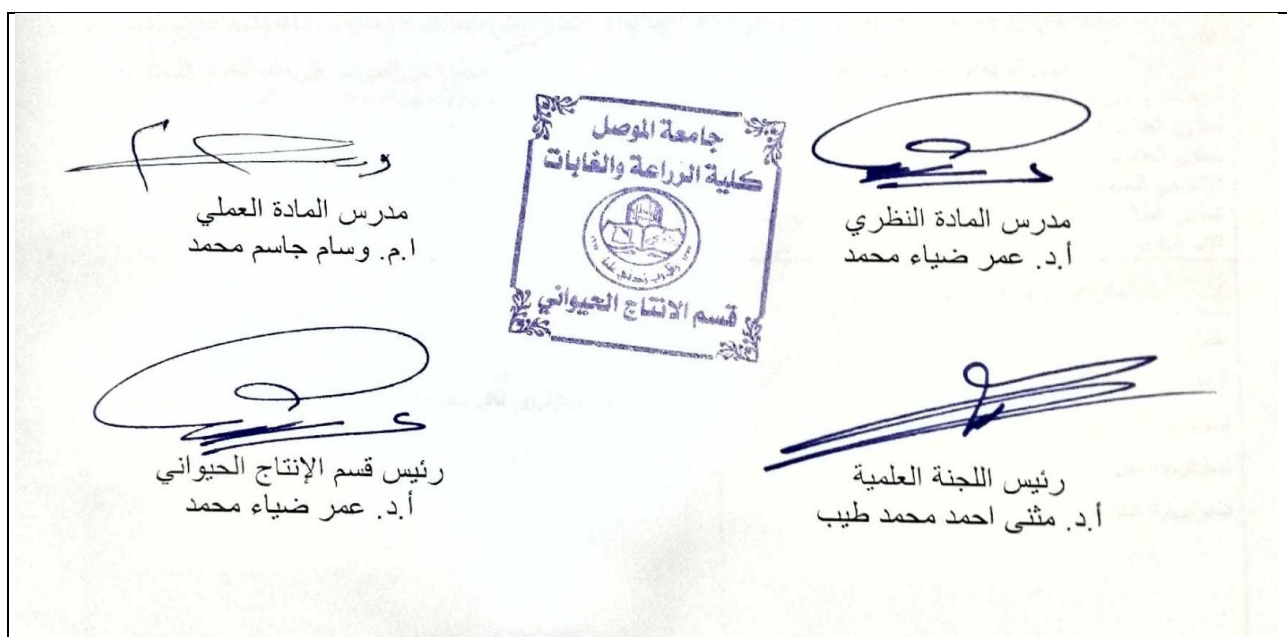 مدرس المادة النظري
أ.د. عمر ضياء محمد
جامعة الموصل
كلية الزراعة والغابات
قسم الانتاج الحيواني
مدرس المادة العملي
ا.م. وسام جاسم محمد
رئيس اللجنة العلمية
أ.د. مثنى احمد محمد طيب
رئيس قسم الإنتاج الحيواني
أ.د. عمر ضياء محمد